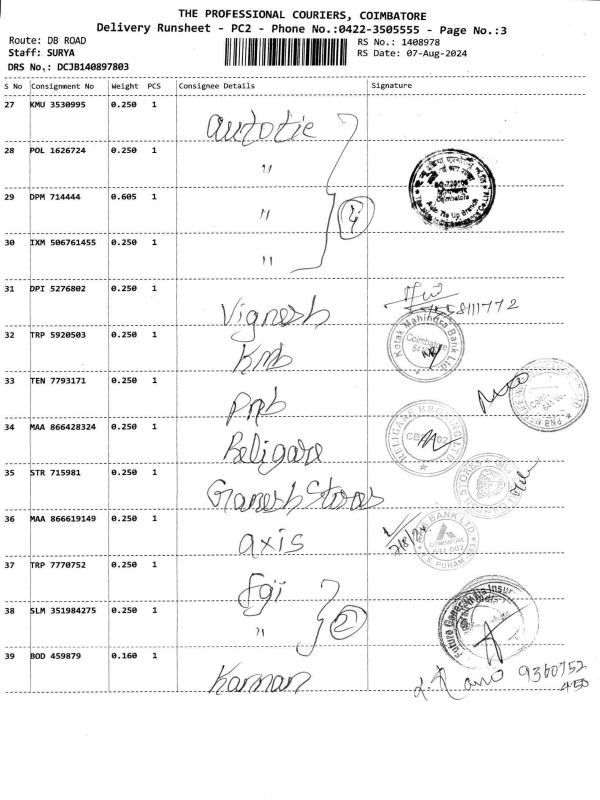 THE PROFESSIONAL COURIERS, COIMBATORE
Delivery Runsheet - PC2 - Phone No.:0422-3505555 - Page No.:3
Route: DB ROAD
RS No.: 1408978
Staff: SURYA
RS Date: 07-Aug-2024
DRS No.: DCJB140897803
S No Consignment No Weight PCS Consignee Details Signature
27 KMU 3530995 0.250 1 autotie
28 POL 1626724 0.250 1 "
29 DPM 714444 0.605 1 "
30 IXM 506761455 0.250 1 "
31 DPI 5276802 0.250 1 Vignesh
32 TRP 5920503 0.250 1 Kmb
Kotak Mahindra Bank Ltd.
Coimbatore
33 TEN 7793171 0.250 1 Pnb
34 MAA 866428324 0.250 1 Religare
RELIGARE BROKING LTD.
35 STR 715981 0.250 1 Ganesh Stores
36 MAA 866619149 0.250 1 axis
BANK LTD.
COIMBATORE
641 002
R.S. PURAM
37 TRP 7770752 0.250 1 fgi
38 SLM 351984275 0.250 1 " 2
Future Generali India Insur
39 BOD 459879 0.160 1 Kannan
9360752
450